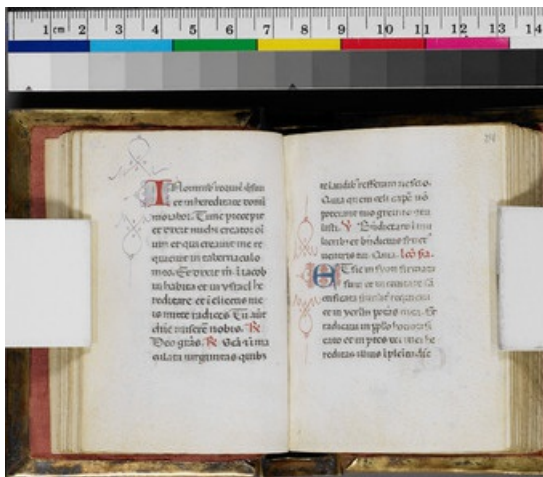 1 cm 2 3 4 5 6 7 8 9 10 11 12 13 14
In omnibus requiē q̄siui
et in hereditate domī
morabor. Tunc precepit
et dixit michi creator oī
um et qui creauit me re
quieuit in tabernaculo
meo. Et dixit m̄. I iacob
in habita et in ysrael he
reditare et ī electis me
is mitte radices Tu aūt
dn̄e miserē nobis. R̄
Deo grās. R̄ Scā ⁊ ima
culata uirginitas quibꝰ
te laudibꝰ refferam nescio.
Quia quem celi capē nō
poterant tuo gremio con
tulisti. V̄ Bn̄dicta tu ī mu
lieribꝰ et bn̄dictus fructꝰ
uentris tui. Quia. lcō iīa.
ET sic in syon firmata
sum et in ciuitate sā
cificata similiter requieui
et in yerlm̄ potās mea. Et
radicaui in pplo honorifi
cato et in ptes dei mei he
reditas illius ⁊ in plenitudīe